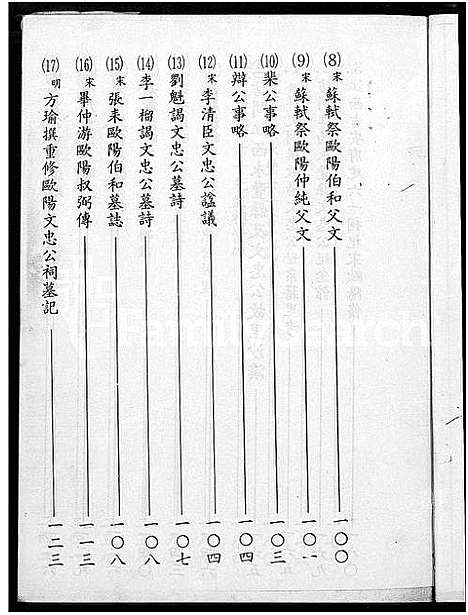 (8)宋蘇軾祭歐陽伯和父文——一〇〇
(9)宋蘇軾祭歐陽仲純父文——一〇一
(10)棐公事略——一〇三
(11)辯公事略——一〇四
(12)宋李清臣文忠公諡議——一〇四
(13)劉魁謁文忠公墓詩——一〇七
(14)李一榴謁文忠公墓詩——一〇八
(15)宋張耒歐陽伯和墓誌——一〇八
(16)宋畢仲游歐陽叔弼傳——一一三
(17)明方瑜撰重修歐陽文忠公祠墓記——一二三
FamilySearch